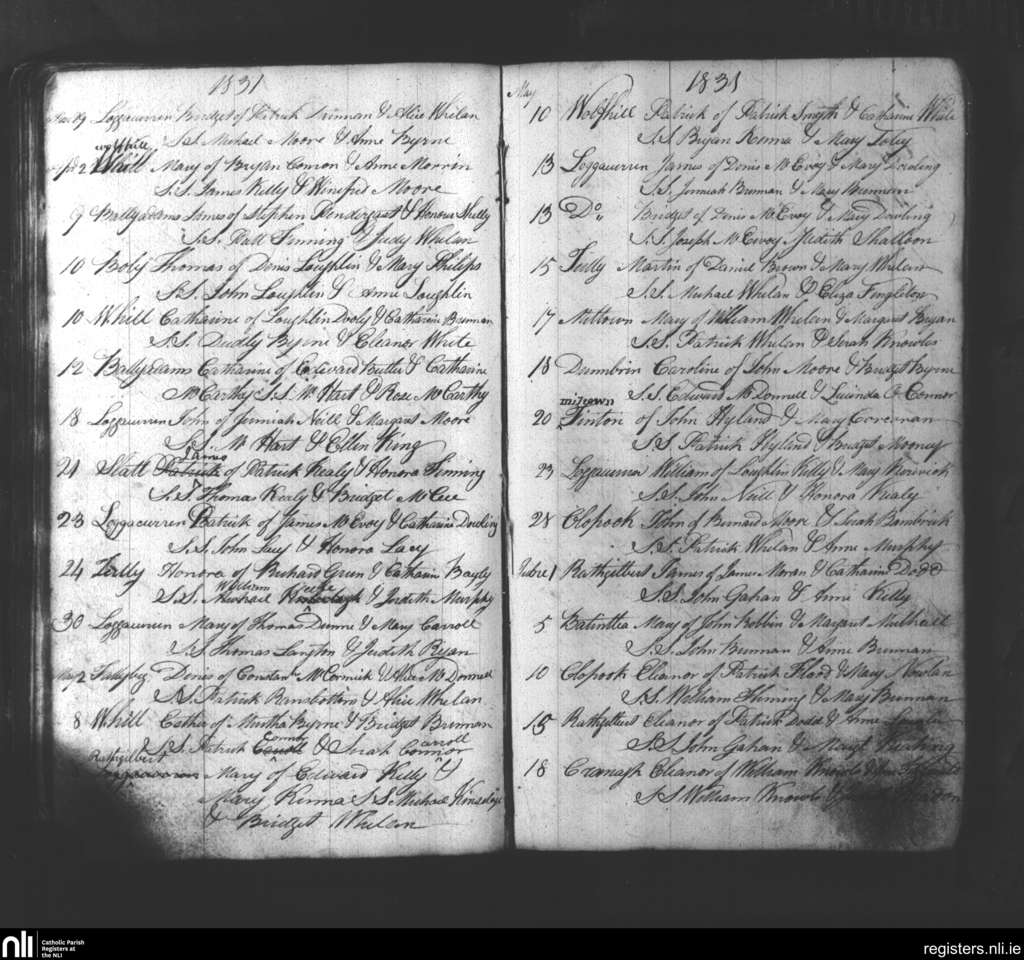 1831
Mar 29 Loggacurren Bridget of Patrick Brennan & Alice Whelan
S.S. Michael Moore & Anne Byrne
wolfhill
2 Whill Mary of Bryan Comon & Anne Morrin
S.S. James Kelly & Winefrid Moore
9 Ballyadams James of Stephen Pendergast & Honour
S.S. Patt Finning & Judy Whelan
10 Boly Thomas of Denis Loughlin & Mary Philips
S.S. John Loughlin & Anne Loughlin
10 Whill Catharine of Loughlin Dooly & Catharin Brennan
S.S. Duddy Byrne & Eleanor White
12 Ballyadams Catharine of Edward Butler & Catharine
McCarthy S.S. Mr Hart & Rose McCarthy
18 Loggacurren John of Jeremiah Neill & Margaret Moore
S.S. Mr Hart & Ellen King
James
21 Slatt Patrick of Patrick Kealy & Honora Finning
S.S. Thomas Kealy & Bridget McCee
23 Loggacurren Patrick of James McEvoy & Catharin Dowling
S.S. John Lacy & Honora Lacy
24 Tully Honora of Richard Green & Catharin Bayly
William
S.S. Michael & Judith Murphy
30 Loggacurren Mary of Thomas Dunne & Mary Carroll
S.S. Thomas Langton & Judith Ryan
May 2 Denis of Constan McCormick & Alice McDonnell
S.S. Patrick Ramsbottom & Alice Whelan
8 Whill of Murtha Byrne & Bridget Brennan
Connor arroll
S.S. Patrick Carroll & Sarah Connor
Rathgilbert
Loggacurren Mary of Edward Kelly &
Mary Kenna S.S. Michael Kinselys
& Bridget Whelan
May 1831
10 Wolfhill Patrick of Patrick Smyth & Catharin White
S.S. Bryan Kenna & Mary Foley
13 Loggacurren James of Denis McEvoy & Mary Dowling
S.S. Jermiah Brennan & Mary Brennan
13 Do Bridget of Denis McEvoy & Mary Dowling
S.S. Joseph McEvoy Judith Shalloon
15 Tully Martin of Daniel Brown & Mary Whelan
S.S. Michael Whelan & Eliza Fingleton
17 Miltown Mary of William Whelan & Margaret Bryan
S.S. Patrick Whelan & Sarah Knowles
18 Dunnbrin Caroline of John Moore & Bridget Byrne
S.S. Edward McDonnell & Lucinda O Connor
miltown
20 Finton of John Hyland & Mary Corcoran
S.S. Patrick Hyland & Bridget Mooney
23 Loggacurren William of Loughlin Kelly & Mary
S.S. John Neill & Honora Kealy
28 Clopook John of Bernard Moore & Sarah Bambrick
S.S. Patrick Whelan & Anne Murphy
1 Rathgilbert James of James Moran & Catharin Dodd
S.S. John Gahan & Anne Kelly
5 Batintlea Mary of John Bobbin & Margaret Mulhall
S.S. John Brennan & Anne Brennan
10 Clopook Eleanor of Patrick Flood & Mary Nowlan
S.S. William Fleming & Mary Brennan
15 Rathgilbert Eleanor of Patrick Dodd & Anne
S.S. John Gahan & Margt
18 Cranagh Eleanor of William Knowls &
S.S. William Knowls &
nli Catholic Parish
Registers at
the NLI
registers.nli.ie